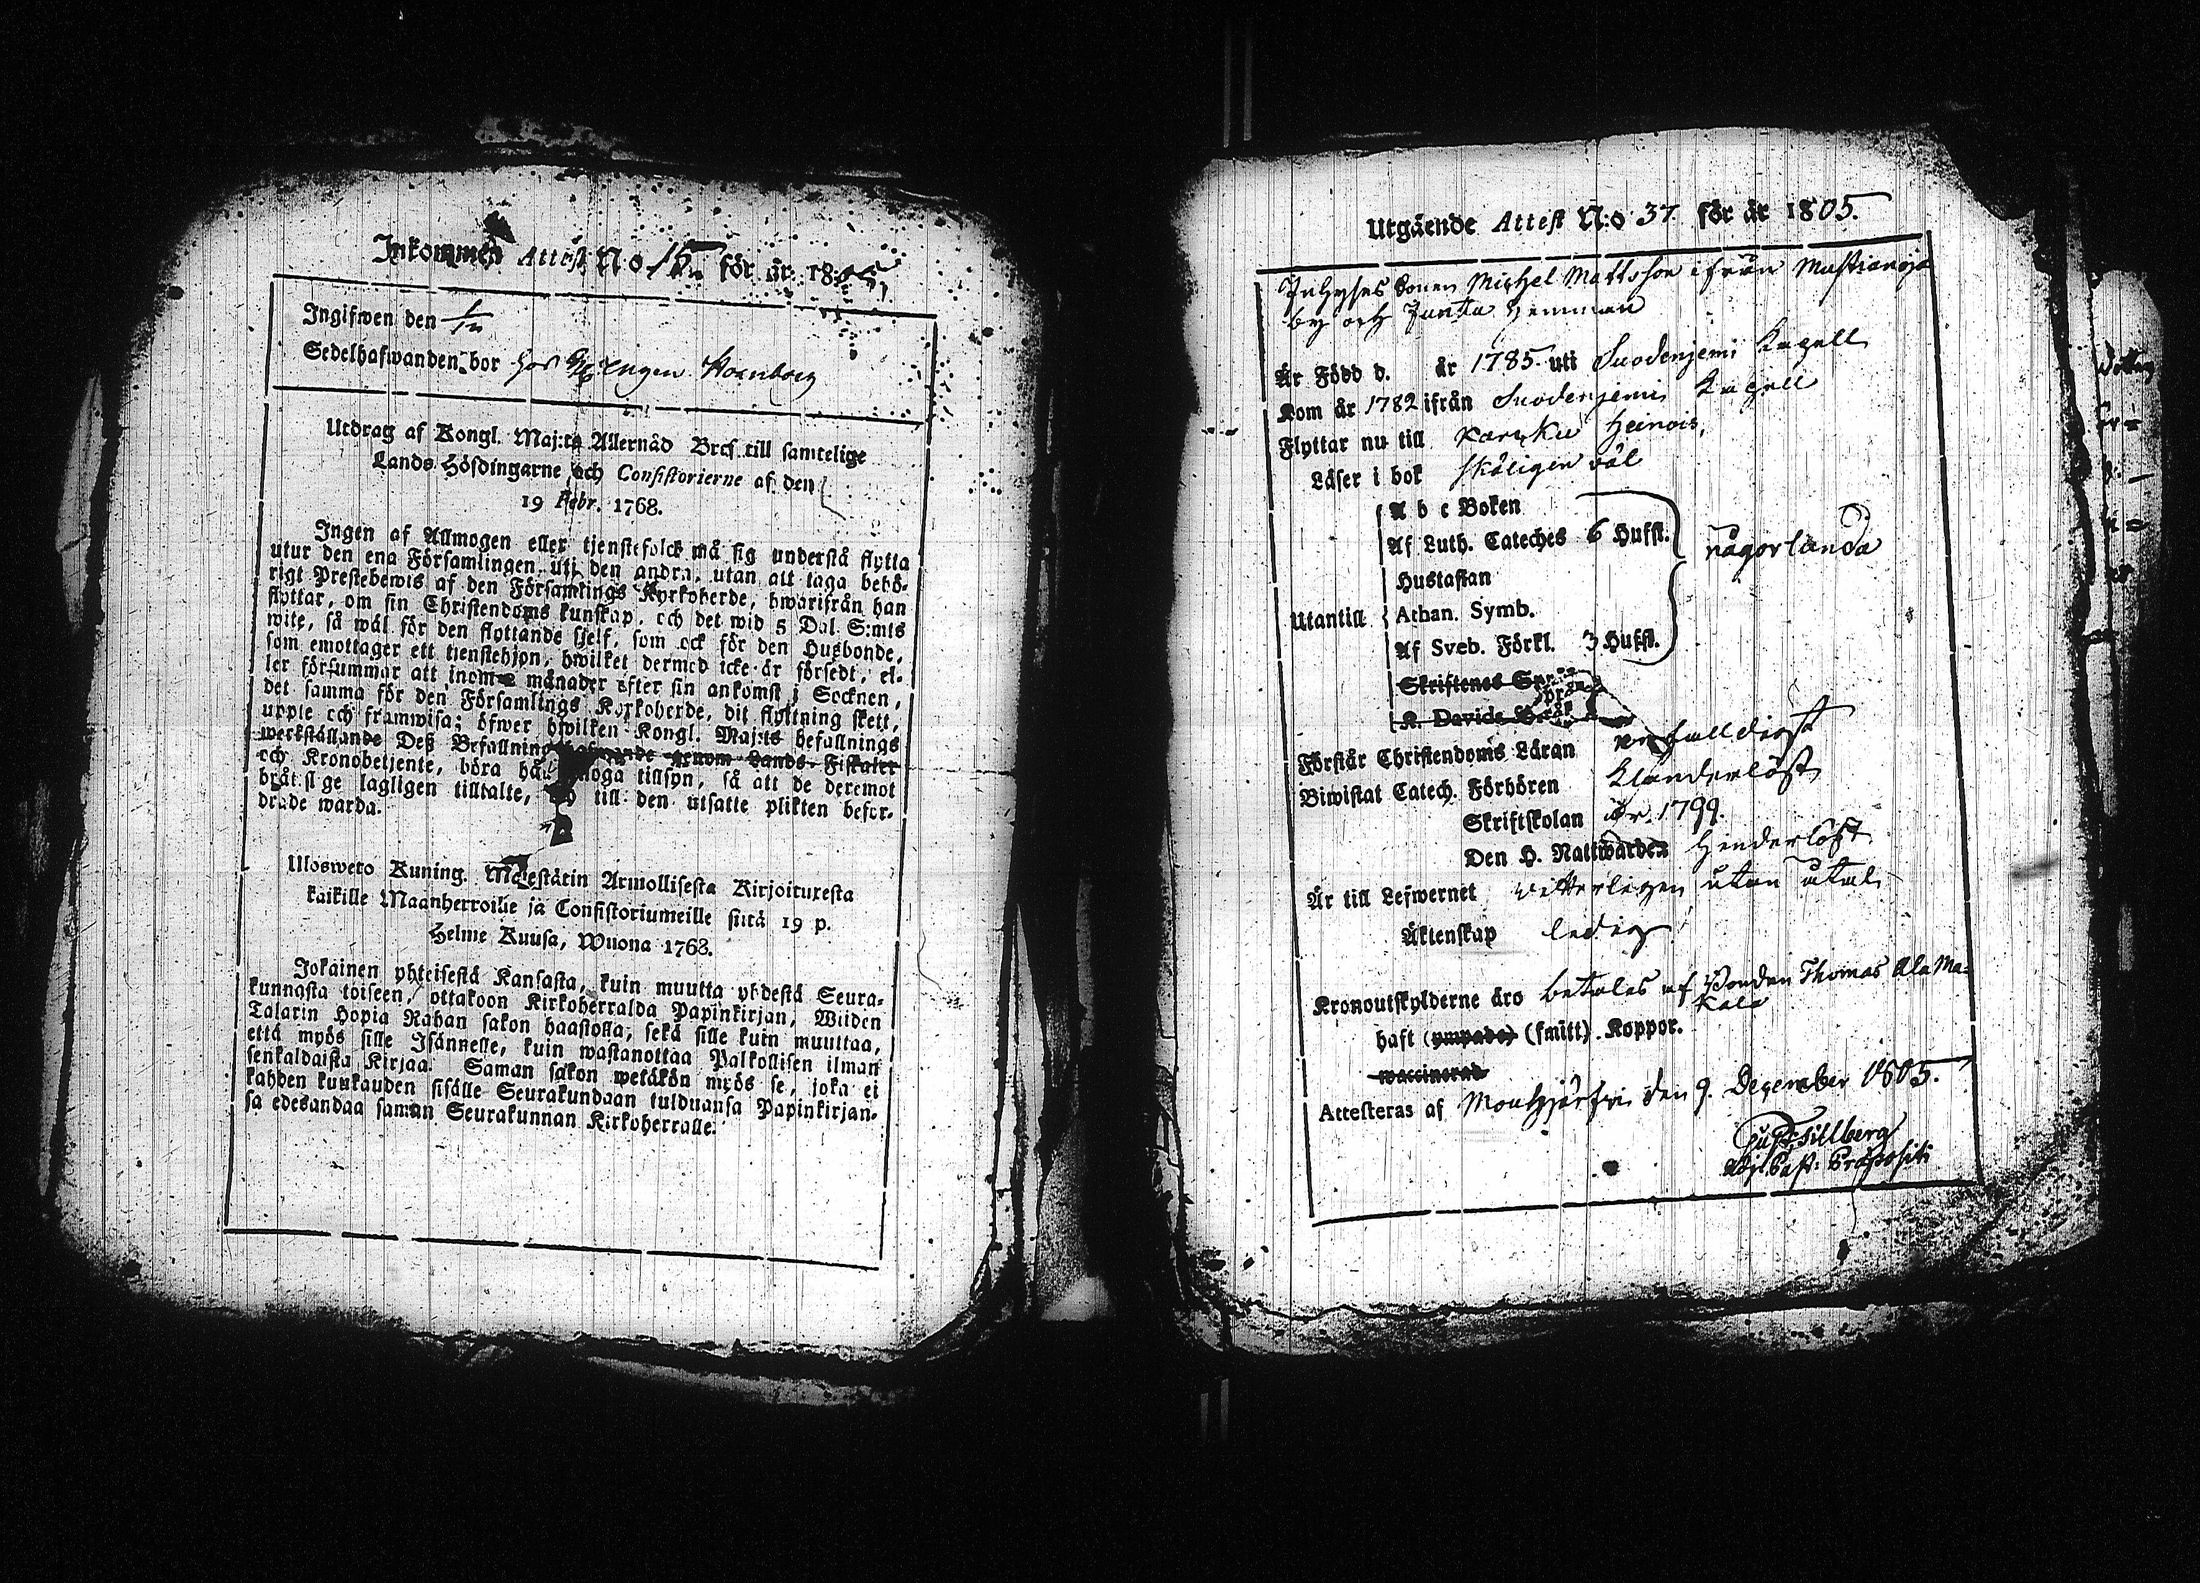 Inkommen Attest No 15 för år 1805
Ingifwen den
Sedelhafwanden bor hos Hornborg
Utdrag af Kongl. Maj:ts Allernåd Bref till samtelige
Lands Höfdingarne och Consistorierne af den
19 Febr. 1768.
Ingen af Allmogen eller tjenstefolck må sig understå flytta
utur den ena Församlingen uti den andra, utan att taga behö-
rigt Prestebewis af den Församlings Kyrkoherde, hwarifrån han
flyttar, om sin Christendoms kunskap, och det wid 5 Dal. S:mts
wite, så wäl för den flyttande sjelf, som ock för den Husbonde,
som emottager ett tjenstehjon, hwilket dermed icke är försedt, el-
ler försummar att inom 2 månader efter sin ankomst i Socknen,
det samma för den Församlings Kyrkoherde, dit flyttning skett,
uppte och framwisa; öfwer hwilken Kongl. Maj:ts befallnings
werkställande Deß Befallningshafwande genom Lands-Fiskaler
och Kronobetjente, böra hålla noga tillsyn, så att de deremot
brätslige lagligen tilltalte, till den utsatte plikten befor-
drade warda.
Ulosweto Kuning. Majestätin Armollisesta Kirjoituxesta
kaikille Maanherroille ja Consistoriumeille siitä 19 p.
Helme Kuusa, Wuona 1768.
Jokainen yhteisestä Kansasta, kuin muutta yhdestä Seura-
kunnasta toiseen, ottakoon Kirkoherralda Papinkirjan, Wiiden
Talarin Hopia Rahan sakon haastolla, sekä sille kuin muuttaa,
että myös sille Isännelle, kuin wastanottaa Palkollisen ilman
senkaldaista Kirjaa. Saman sakon wetäkön myös se, joka ei
kahden kuukauden sisälle Seurakundaan tulduansa Papinkirjan-
sa edesandaa saman Seurakunnan Kirkoherralle.
Utgående Attest N:o 37. för år 1805.
Inhyses Sonen Michel Mattsson ifrån Mustianoja
by och Juntta Hemman
Är Född d. år 1785 uti Suodenjemi Kapell
Kom år 1782 ifrån Suodenjemi Kapell
Flyttar nu till Karkku Heinois,
Läser i bok skäligen väl
Utantill
A b c Boken
Af Luth. Cateches 6 Hufst.
Hustaflan
Athan. Symb.
Af Sveb. Förkl. 3 Hufst.
någorlunda
Skriftenes
K. Davids
Förstår Christendoms Läran enfalldigt
Biwistat Catech. Förhören Klanderlöst
Skriftskolan år 1799.
Den H. Nattwarden Hinderlöst
Är till Lefwernet vitterligen utan åtal
Äktenskap ledig
Kronoutskylderne äro betalas af Bonden Thomas Ala Ma-
kala
haft (ympade) (smitt). Koppor.
waccinerad
Attesteras af Mouhijärfvi den 9. December 1805.
Gust: Tillberg
Adj. Past: Præpositi